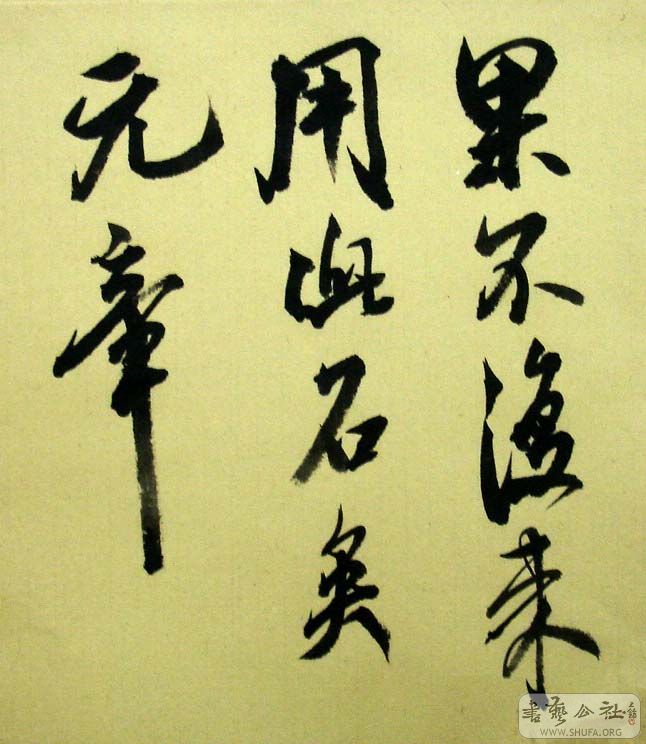 果不復来
用此石矣
元章
書藝公社
WWW.SHUFA.ORG